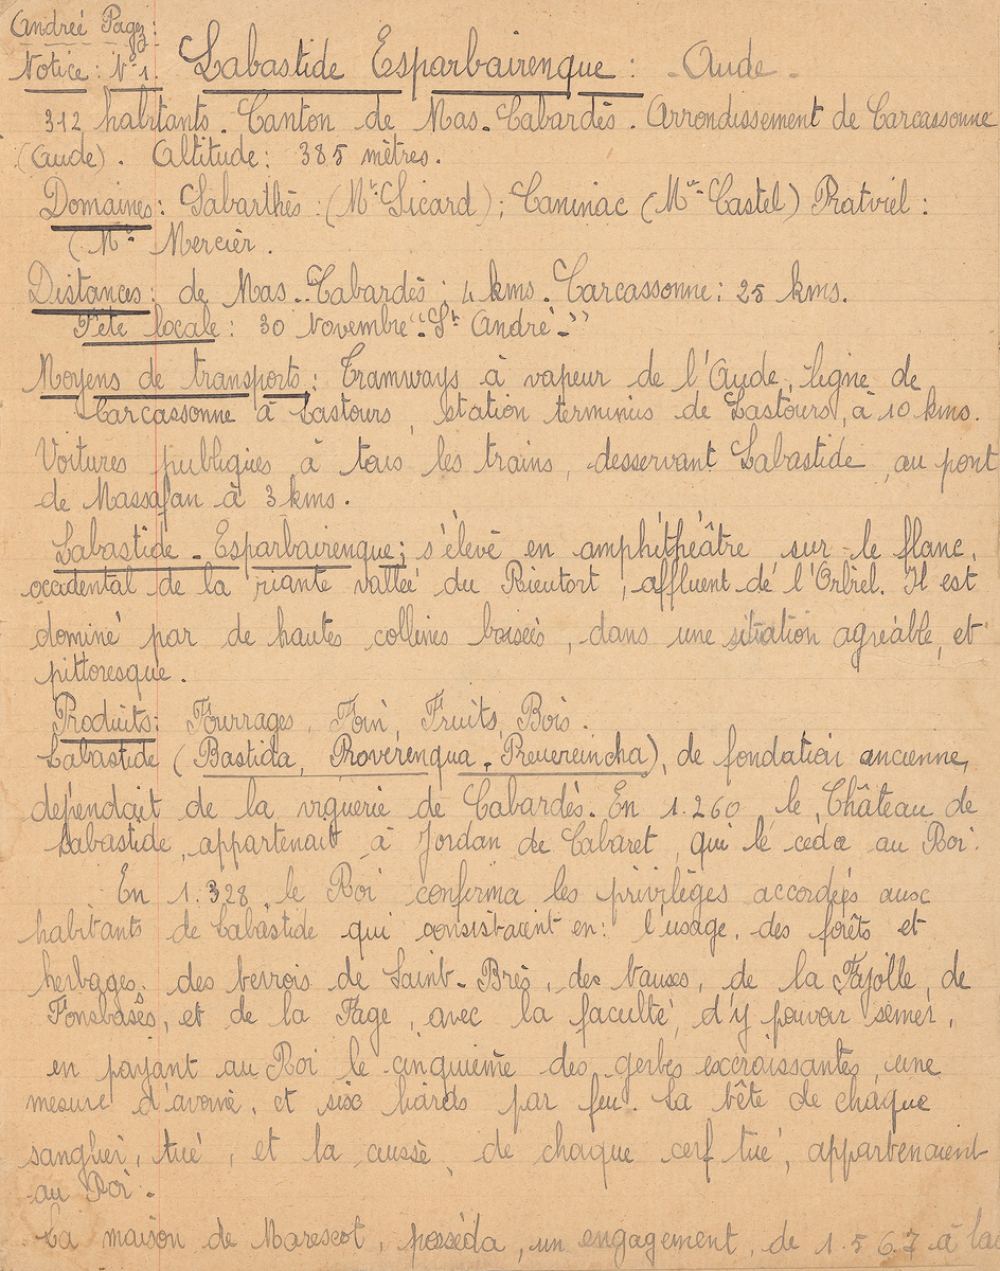 Andreé Pagez:
Notice: N° 1. Labastide Esparbairenque: - Aude -
312 habitants. Canton de Mas-Cabardès. Arrondissement de Carcassonne
(Aude). Altitude: 385 mètres.
Domaines: Sabarthès: (Mr Sicard); Caninac (Mr Castel) Pratviel:
(Mr Mercier.
Distances: de Mas-Cabardès: 4 kms. Carcassonne: 25 kms.
Fête locale: 30 Novembre "St André"
Moyens de transports: Tramways à vapeur de l'Aude, ligne de
Carcassonne à Lastours, station terminus de Lastours, à 10 kms.
Voitures publiques à tous les trains, desservant Labastide, au pont
de Massafan à 3 kms.
Labastide - Esparbairenque; s'élève en amphithéâtre sur le flanc,
occidental de la riante vallée du Rieutort, affluent de l'Orbiel. Il est
dominé par de hautes collines boisées, dans une situation agréable, et
pittoresque.
Produits: Fourrages, Foin, Fruits, Bois.
Labastide (Bastida, Proverenqua, Prevereincha), de fondation ancienne,
dépendait de la viguerie de Cabardès. En 1.260, le Château de
Labastide, appartenait à Jordan de Cabaret, qui le céda au Roi.
En 1.328, le Roi confirma les privilèges accordés aux
habitants de Labastide qui consistaient en: l'usage, des forêts et
herbages, des terrois de Saint-Brès, des Vauses, de la Fajolle, de
Fonsbasês, et de la Fage, avec la faculté, d'y pouvoir semer,
en payant au Roi le cinquième des gerbes excroissantes, une
mesure d'avoine, et six liards par feu. La tête de chaque
sanglier, tué, et la cuisse, de chaque cerf tué, appartenaient
au Roi.
La maison de Marescot, posséda, un engagement, de 1.567 à la